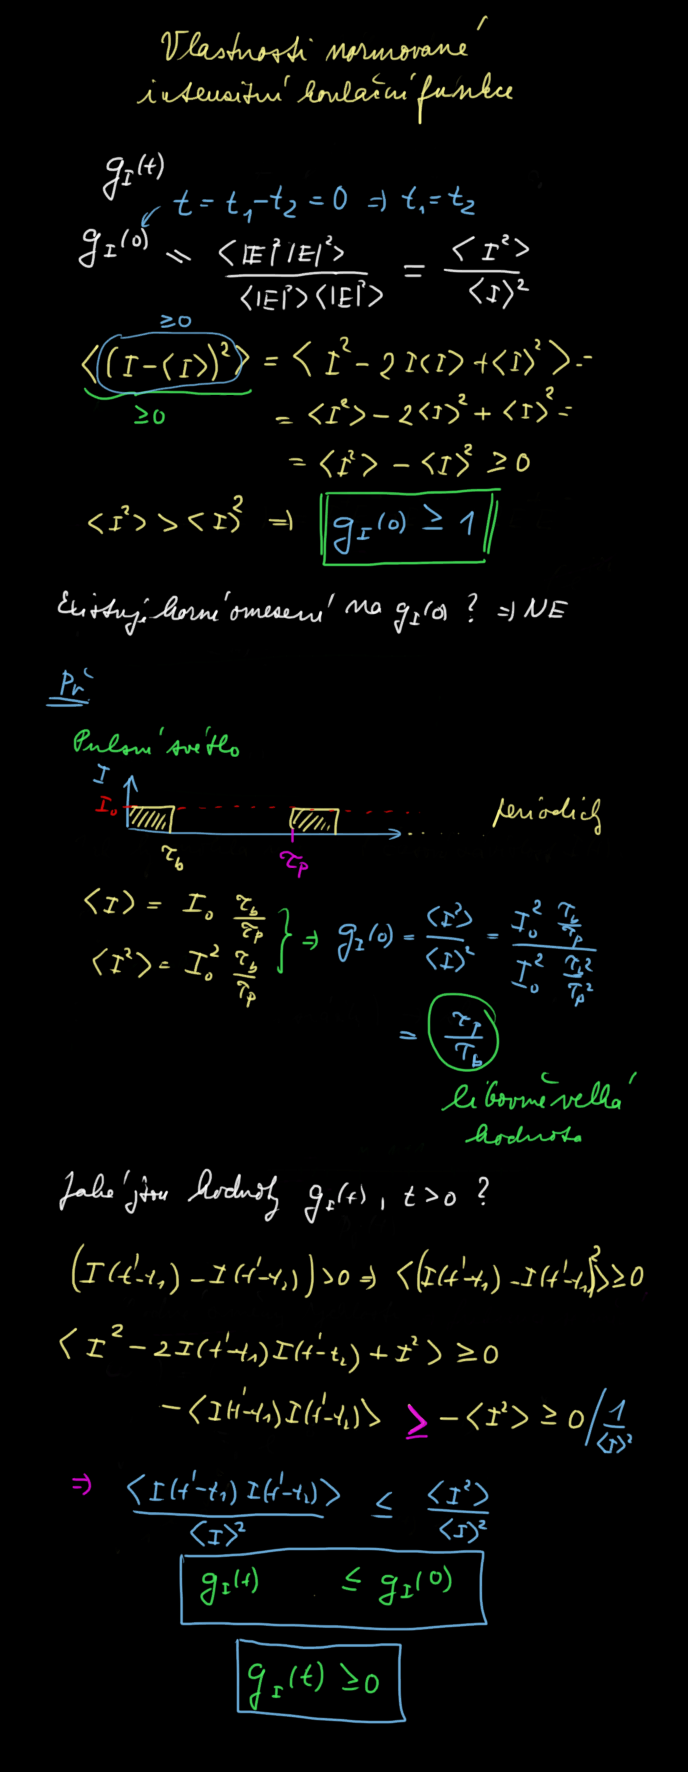 Vlastnosti normované
intensitní korelační funkce
g_I(t)
t = t₁-t₂ = 0 ⇒ t₁=t₂
g_I(0) = <|E|²|E|²> / <|E|²><|E|²> = <I²> / <I>²
≥0
<(I-<I>)²> = <I² - 2I<I> + <I>²> =
≥0
= <I²> - 2<I>² + <I>² =
= <I²> - <I>² ≥ 0
<I²> > <I>² ⇒ g_I(0) ≥ 1
Existuje horní omezení na g_I(0) ? ⇒ NE
Př
Pulsní světlo
I
I₀
periodicky
τ_b
τ_p
<I> = I₀ τ_b/τ_p
<I²> = I₀² τ_b/τ_p
} ⇒ g_I(0) = <I²>/<I>² = I₀² τ_b/τ_p / I₀² τ_b²/τ_p²
= τ_p/τ_b
libovolně velká
hodnota
Jaké jsou hodnoty g_I(t), t>0 ?
(I(t'-t₁) - I(t'-t₂)) > 0 ⇒ <(I(t'-t₁) - I(t'-t₂))²> ≥ 0
<I² - 2I(t'-t₁)I(t'-t₂) + I²> ≥ 0
-<I(t'-t₁)I(t'-t₂)> ≥ -<I²> ≥ 0 / 1/<I>²
⇒ <I(t'-t₁) I(t'-t₂)> / <I>² ≤ <I²> / <I>²
g_I(t) ≤ g_I(0)
g_I(t) ≥ 0